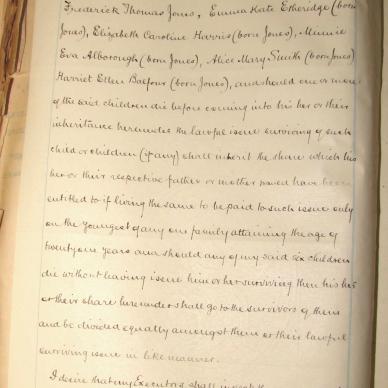 Frederick Thomas Jones, Emma Kate Etheridge (born
Jones), Elizabeth Caroline Harris (born Jones), Minnie
Eva Alborough (born Jones), Alice Mary Smith (born Jones)
Harriet Ellen Balfour (born Jones), and should one or more
of the said children die before coming into his her or their
inheritance hereunder the lawful issue surviving of such
child or children (if any) shall inherit the share which his
her or their respective father or mother would have been
entitled to if living the same to be paid to such issue only
on the youngest of any one family attaining the age of
twentyone years and should any of my said six children
die without leaving issue him or her surviving then his her
or their share hereunder shall go to the survivors of them
and be divided equally amongst them or their lawful
surviving issue in like manner.
I desire that my Executors shall